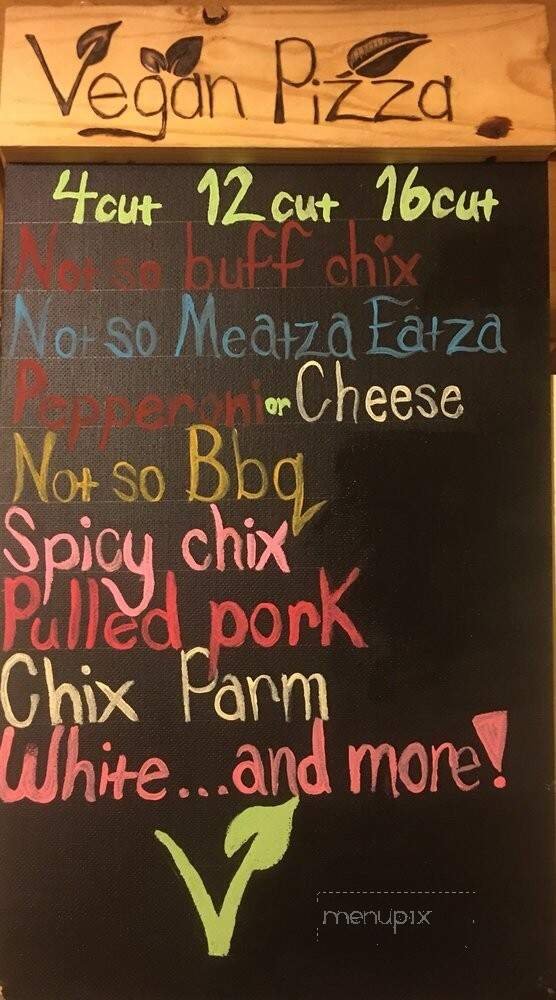 Vegan Pizza
4cut 12 cut 16cut
Not so buff chix
Not so Meatza Eatza
Pepperoni or Cheese
Not so Bbq
Spicy chix
Pulled pork
Chix Parm
White...and more!
V
menupix